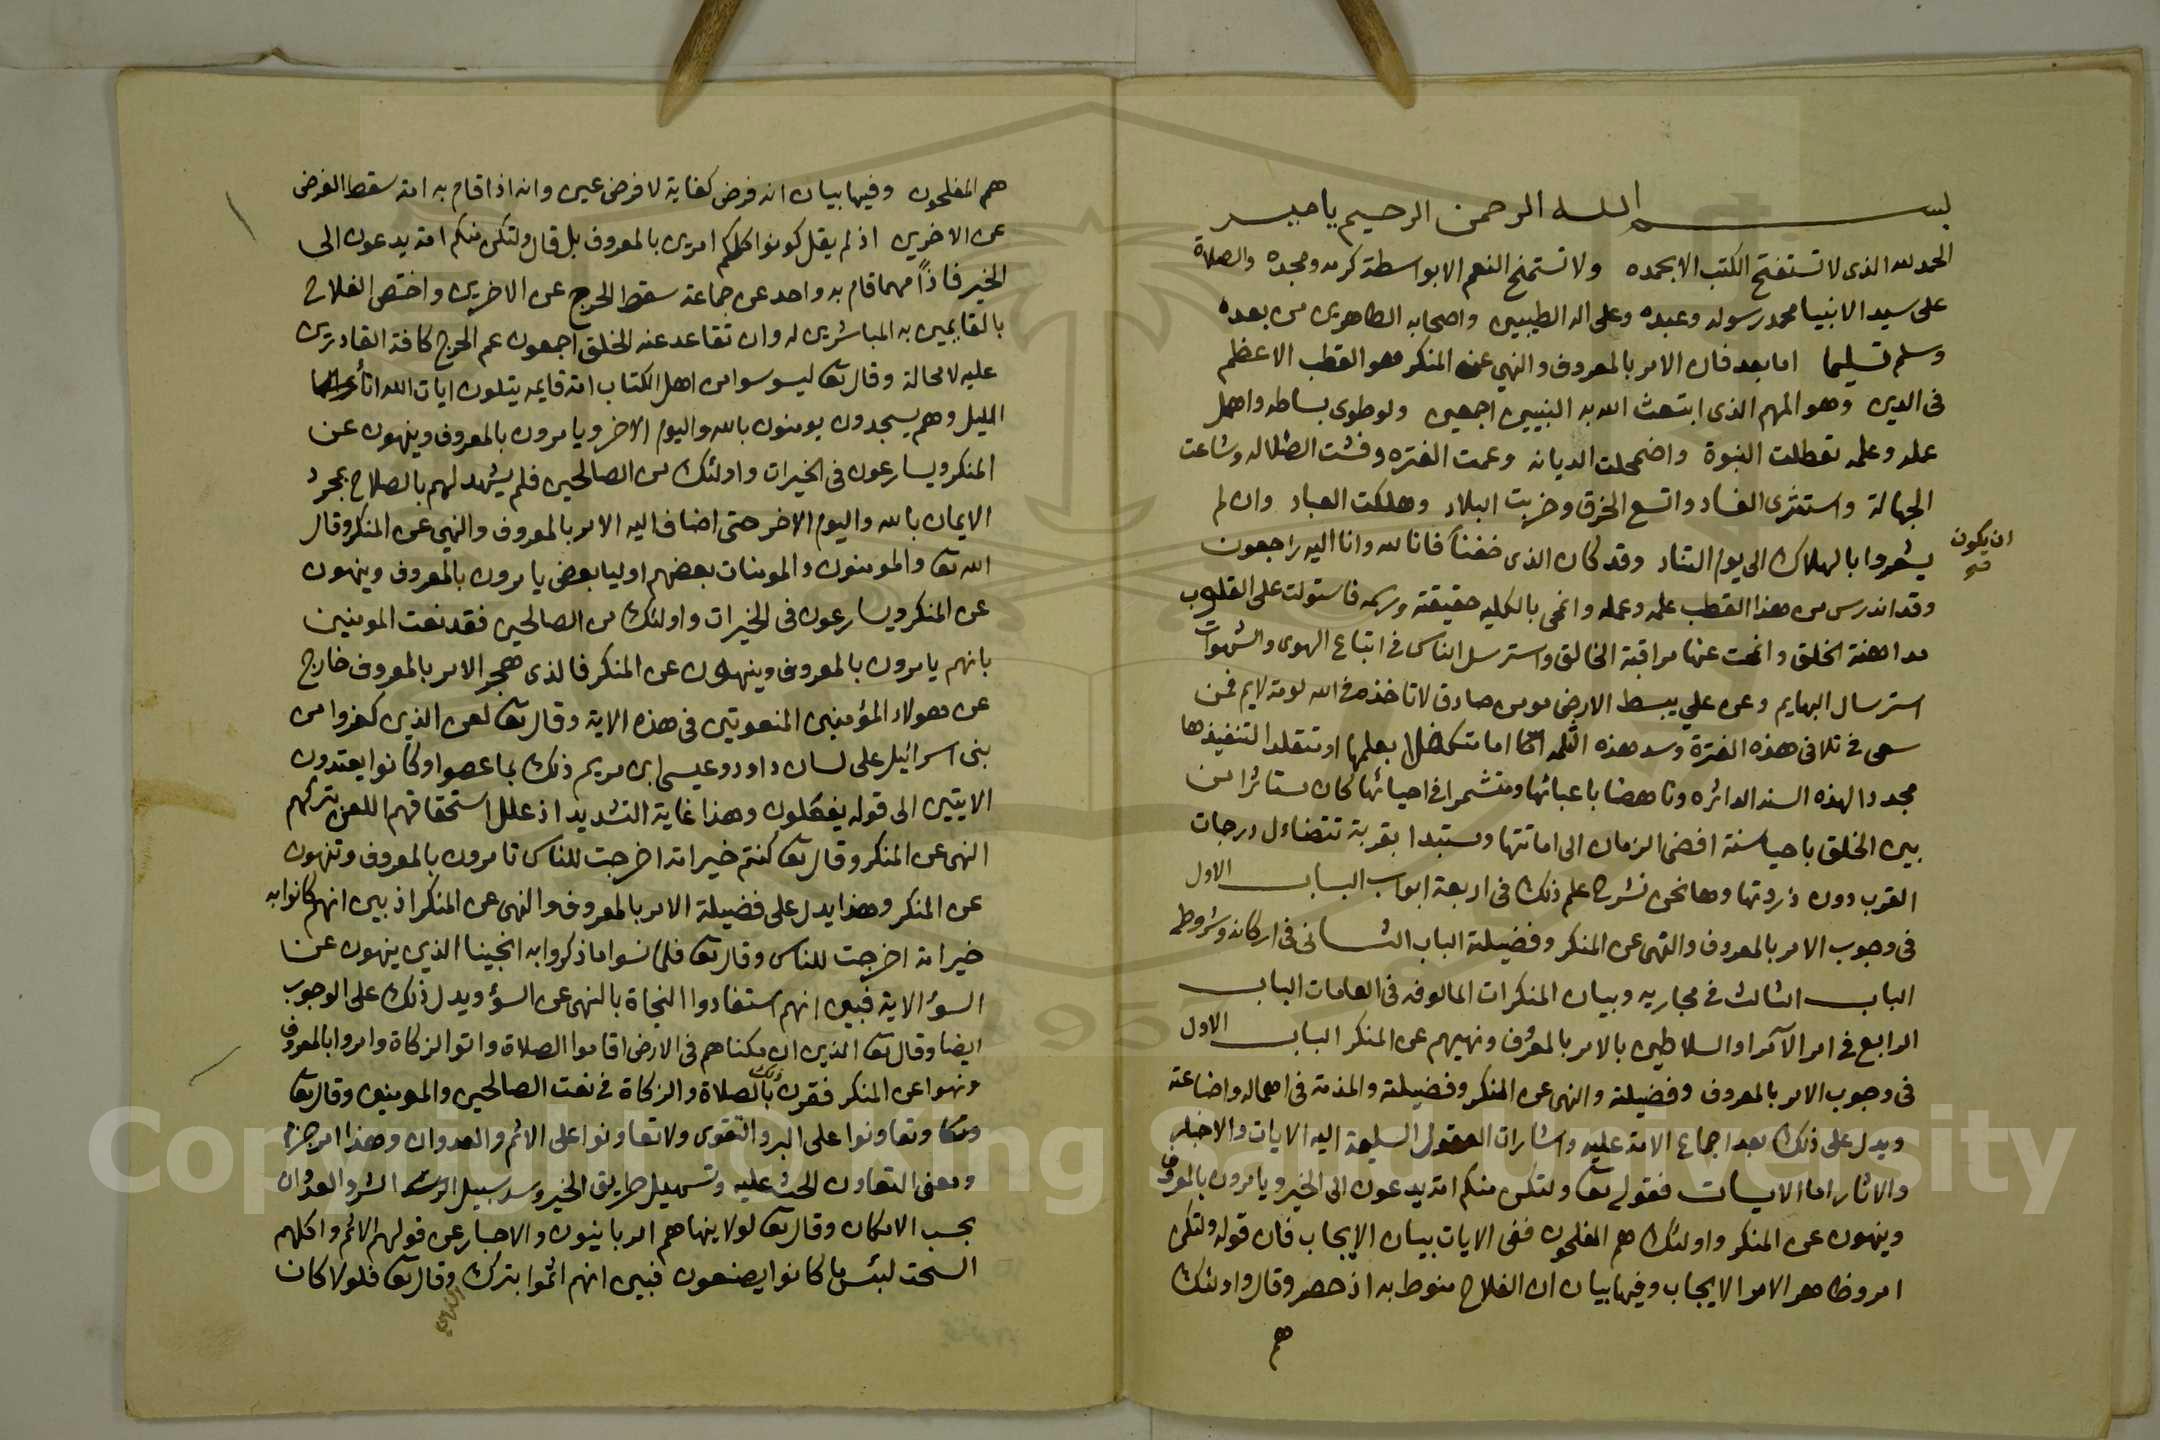 بسم الله الرحمن الرحيم يا مبسر
الحمد لله الذى لا تستفتح الكتب الا بحمده ولا تستمنح النعم الا بواسطة كرمه ومجده والصلاة
على سيد الانبيا محمد رسوله وعبده وعلى اله الطيبين واصحابه الطاهرين من بعده
وسلم تسليما اما بعد فان الامر بالمعروف والنهي عن المنكر هو القطب الاعظم
فى الدين وهو المهم الذى ابتعث الله به النبيين اجمعين ولو طوى بساطه واهمل
عمله وعلمه تعطلت النبوة واضمحلت الديانه وعمت الفتره وفشت الضلاله وشاعت
الجهالة واستشرى الفساد واتسع الخرق وخربت البلاد وهلكت العباد وان لم
يشعروا بالهلاك الى يوم التناد وقد كان الذى خفنا فانا لله وانا اليه راجعون
ان يكون صح
وقد اندرس من هذا القطب علمه وعمله وانمحى بالكليه حقيقته ورسمه فاستولت على القلوب
مداهنة الخلق وانمحت عنها مراقبة الخالق واسترسل الناس فى اتباع الهوى والشهوات
استرسال البهايم وعز على بسط الارض مومن صادق لا تاخذه فى الله لومة لايم فمن
سعى فى تلافى هذه الفترة وسد هذه الثلمه اما متكفلا بعلمها او متقلدا لتنفيذها
مجددا لهذه السنه الداثره وناهضا باعبائها ومتشمرا فى احيائها كان مستاثرا من
بين الخلق باحيا سنة افضى الزمان الى اماتتها ومستبدا بقربة تتضاءل درجات
القرب دون ذروتها وها نحن نشرح علم ذلك فى اربعة ابواب الباب الاول
فى وجوب الامر بالمعروف والنهى عن المنكر وفضيلة الباب الثانى فى اركانه وشروطه
الباب الثالث فى مجاريه وبيان المنكرات المالوفه فى العادات الباب
الرابع فى امر الآمرا والسلاطين بالامر بالمعروف ونهيهم عن المنكر الباب الاول
فى وجوب الامر بالمعروف وفضيلة والنهى عن المنكر وفضيلته والمذمة فى اهماله واضاعته
ويدل على ذلك بعد اجماع الامة عليه واشارات العقول السليمة اليه الايات والاخبار
والاثار اما الايات فقوله تعا ولتكن منكم امة يدعون الى الخير ويامرون بالمعروف
وينهون عن المنكر واولئك هم المفلحون ففى الايات بيان الايجاب فان قوله ولتكن
امر وظاهر الامر الايجاب وفيها بيان ان الفلاح منوط به اذ حصر وقال واولئك
هم
هم المفلحون وفيها بيان انه فرض كفاية لا فرض عين وانه اذا قام به امة سقط الفرض
عن الاخرين اذ لم يقل كونوا كلكم امرين بالمعروف بل قال ولتكن منكم امة يدعون الى
الخير فاذاً مهما قام به واحد عن جماعة سقط الحرج عن الاخرين واختص الفلاح
بالقايمين به المباشرين له وان تقاعد عنه الخلق اجمعون عم الحرج كافة القادرين
عليه لا محالة وقال تعا ليسو سوا من اهل الكتاب امة قايمه يتلون ايات الله اناء
الليل وهم يسجدون يومنون بالله واليوم الاخر ويامرون بالمعروف وينهون عن
المنكر ويسارعون فى الخيرات واولئك من الصالحين فلم يشهد لهم بالصلاح بمجرد
الايمان بالله واليوم الاخر حتى اضاف اليه الامر بالمعروف والنهي عن المنكر وقال
الله تعا والمومنون والمومنات بعضهم اوليا بعض يامرون بالمعروف وينهون
عن المنكر ويسارعون فى الخيرات واولئك من الصالحين فقد نعت المومنين
بانهم يامرون بالمعروف وينهون عن المنكر فالذى هجر الامر بالمعروف خارج
عن هولاء المؤمنين المنعوتين فى هذه الاية وقال تعا لعن الذين كفروا من
بنى اسرائيل على لسان داود وعيسى ابن مريم ذلك بما عصوا وكانوا يعتدون
الايتين الى قوله يفعلون وهذا غاية التشديد اذ علل استحقاقهم اللعن بتركهم
النهى عن المنكر وقال تعا كنتم خير امة اخرجت للناس تامرون بالمعروف وتنهون
عن المنكر وهذا يدل على فضيلة الامر بالمعروف والنهى عن المنكر اذ بين انهم كانوا به
خير امة اخرجت للناس وقال تعا فلما نسوا ما ذكروا به انجينا الذين ينهون عن
السوؤ الاية فبين انهم استفادوا النجاة بالنهى عن السؤ ويدل ذلك على الوجوب
ايضا وقال تعا الذين ان مكناهم فى الارض اقاموا الصلاة واتو الزكاة وامروا بالمعروف
ونهوا عن المنكر فقرن ذلك بالصلاة والزكاة فى نعت الصالحين والمومنين وقال تعا
وتعاونوا على البر والتقوى ولا تعاونوا على الاثم والعدوان وهذا امر جزم
ومعنى التعاون الحث عليه وتسهيل طريق الخير وسد سبيل الشر والعدوان
بحسب الامكان وقال تعا لولا ينهاهم الربانيون والاحبار عن قولهم الاثم واكلهم
السحت لبئس ما كانوا يصنعون فبين انهم اثموا بترك النهي وقال تعا فلولا كان
Copyright © King Saud University
1957